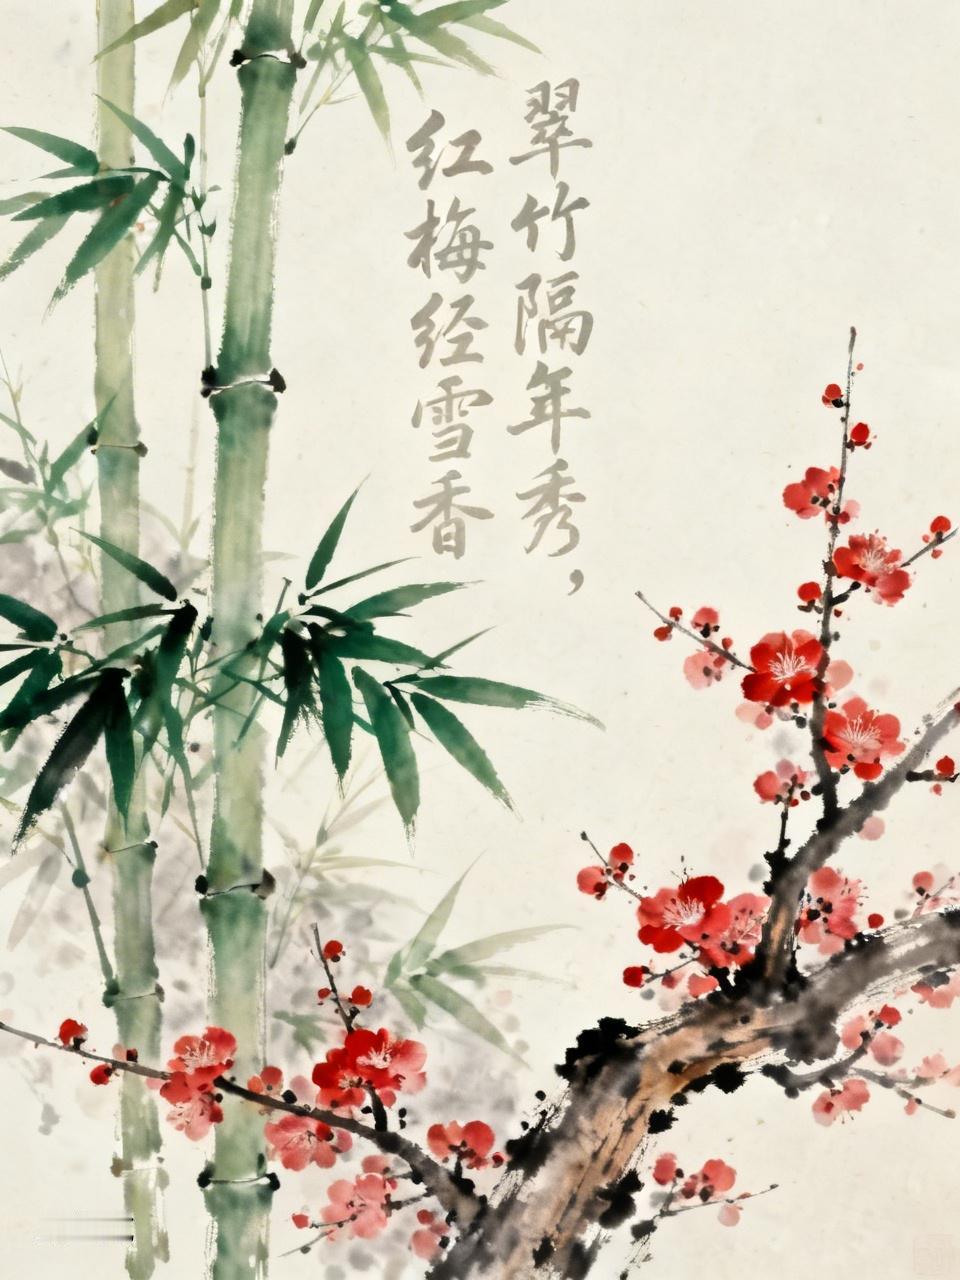 翠竹隔年秀，
红梅经雪香